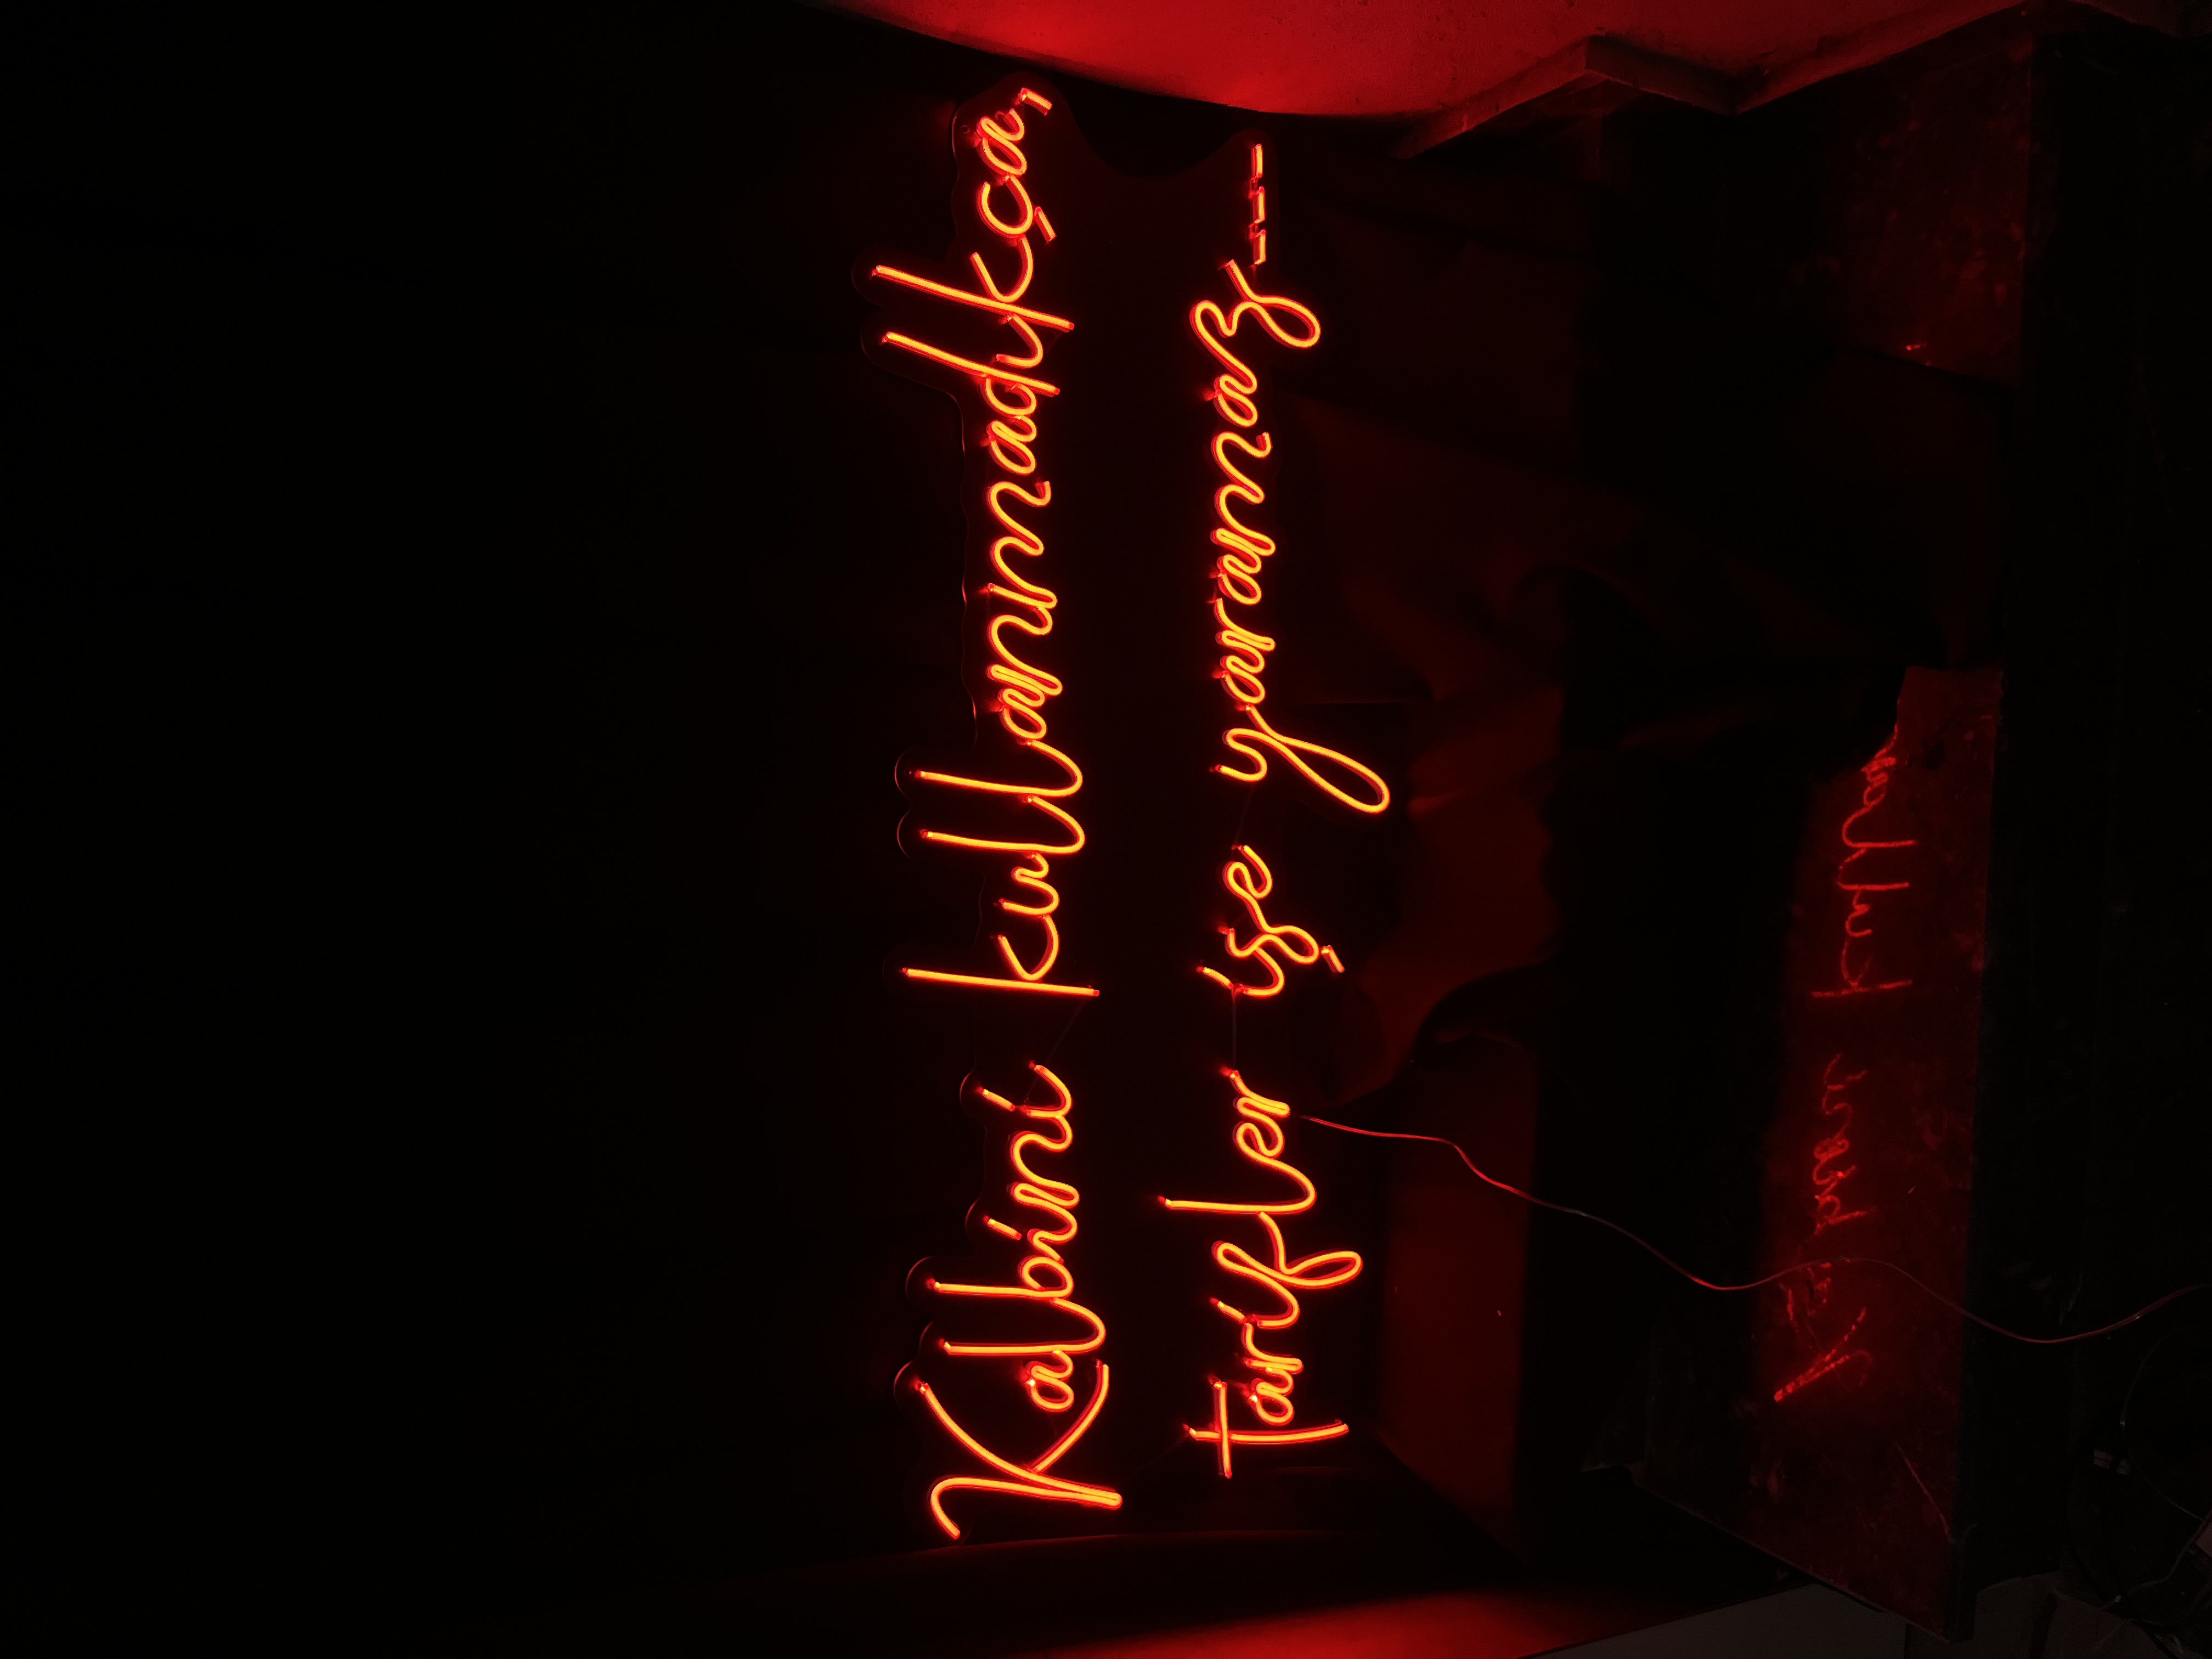 Kalbini kullanmadıkça,
tarifler işe yaramaz...